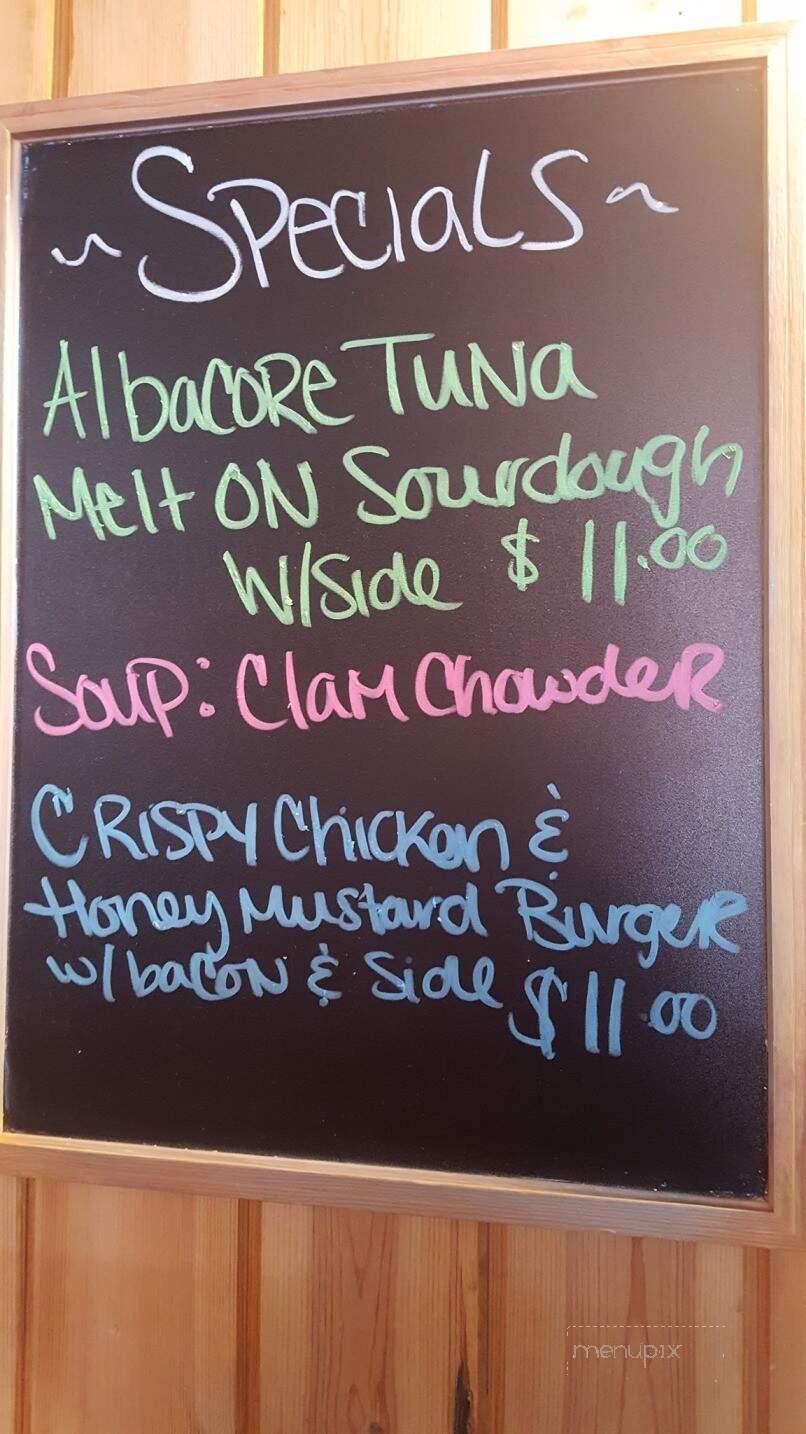 ~ Specials ~
Albacore Tuna
Melt on Sourdough
w/side $11.00
Soup: Clam Chowder
Crispy Chicken &
Honey Mustard Burger
w/bacon & side $11.00
menupix